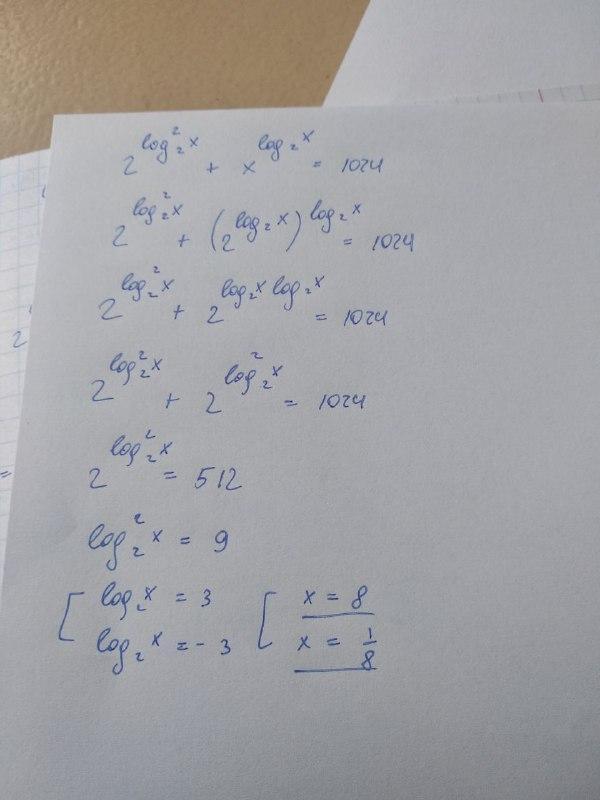 2^{log_2^2 x} + x^{log_2 x} = 1024
2^{log_2^2 x} + (2^{log_2 x})^{log_2 x} = 1024
2^{log_2^2 x} + 2^{log_2 x log_2 x} = 1024
2^{log_2^2 x} + 2^{log_2^2 x} = 1024
2^{log_2^2 x} = 512
log_2^2 x = 9
[ log_2 x = 3 [ x = 8
log_2 x = - 3 x = 1/8